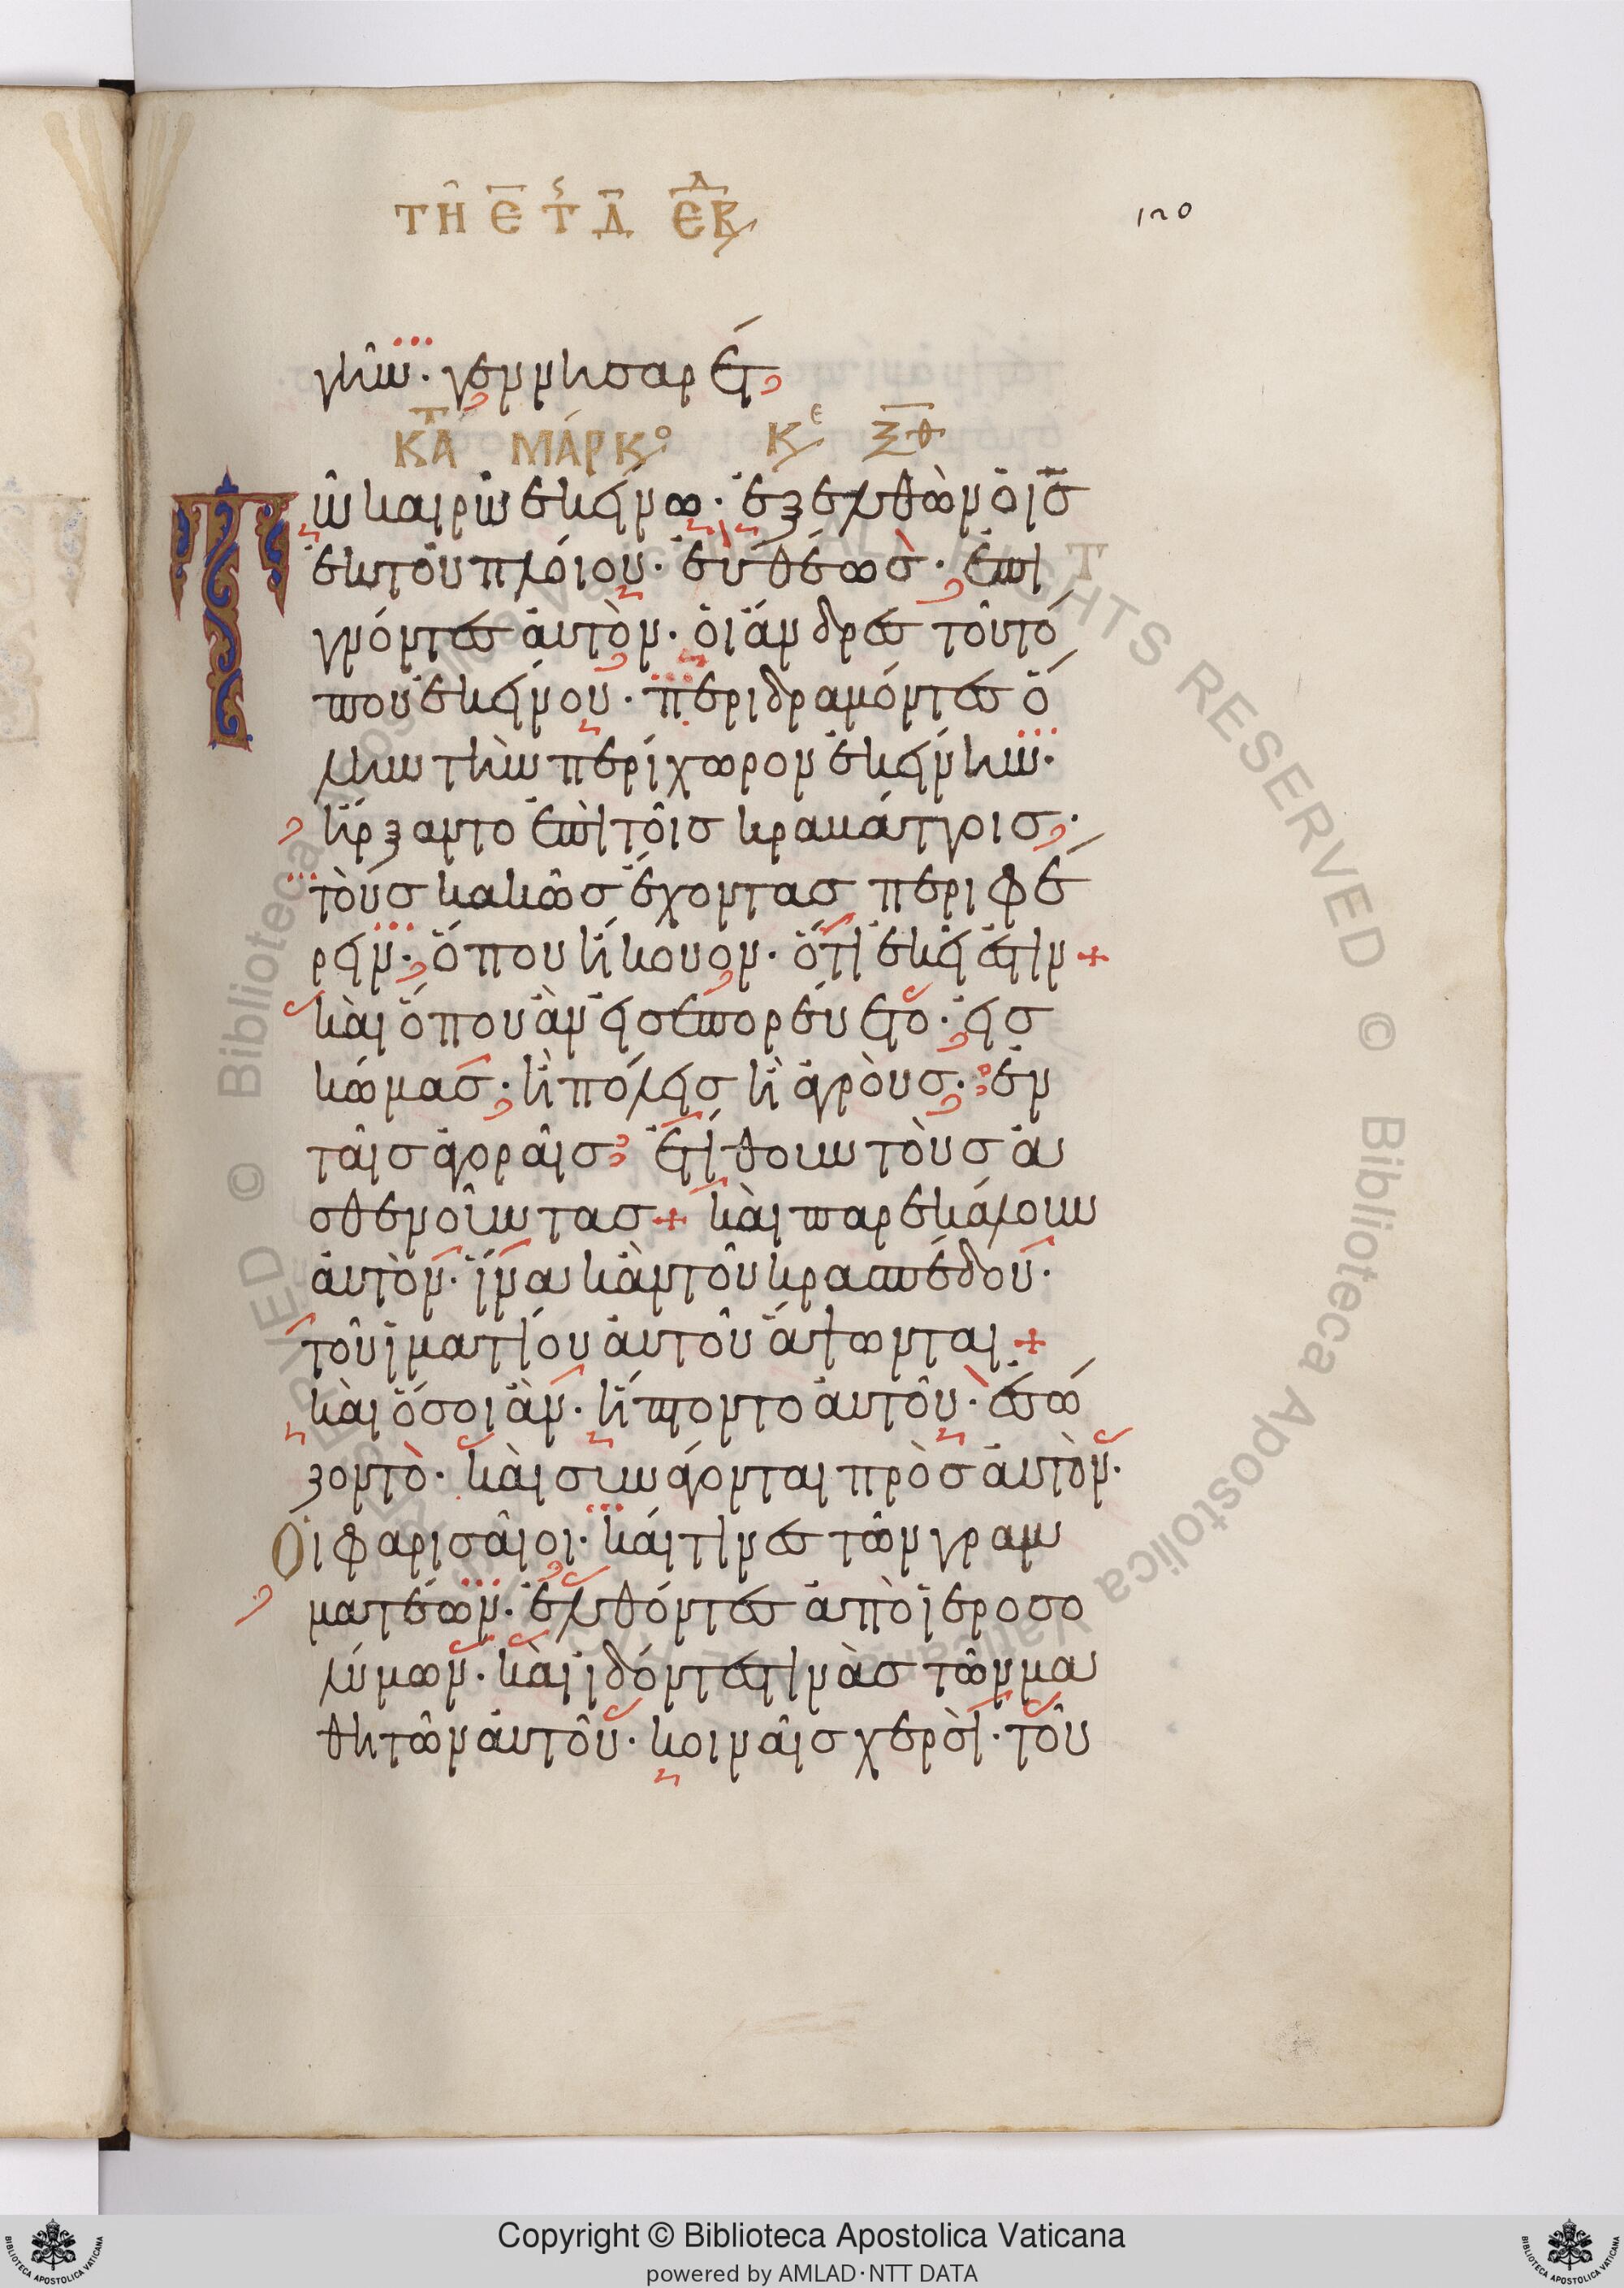 ΤΗ Ε ΤΣ Δ ΕΒΔ
120
γῆν· γεννησαρέτ
ΚΑΤ ΜΑΡΚΟ ΚΕ ΞΘ
Τῶ καιρῶ ἐκείνω· ἐξελθὼν ὁ ισ
ἐκ τοῦ πλοίου· εὐθέωσ· ἐπι
γνόντεσ αὐτὸν· οἱ ἄνδρεσ τοῦ τό
που ἐκείνου· περιδραμόντεσ ὅ
λην τὴν περίχωρον ἐκείνην·
ἤρξαντο ἐπὶ τοῖσ κραβάττοισ·
τοὺσ κακῶσ ἔχοντασ περιφέ
ρειν· ὅπου ἤκουον· ὅτι ἐκεῖ ἐστιν +
καὶ ὅπου ἂν εἰσεπορεύετο· εἰσ
κώμασ· ἢ πόλεισ ἢ ἀγρούσ· ἐν
ταῖσ ἀγοραῖσ ἐτίθουν τοὺσ ἀ
σθενοῦντασ + καὶ παρεκάλουν
αὐτὸν· ἵνα κἂν τοῦ κρασπέδου·
τοῦ ἱματίου αὐτοῦ ἅψωνται +
καὶ ὅσοι ἂν· ἥπτοντο αὐτοῦ· ἐσώ
ζοντο· καὶ συνάγονται πρὸσ αὐτὸν·
Οἱ φαρισαῖοι· καί τινεσ τῶν γραμ
ματέων· ἐλθόντεσ ἀπὸ ἱεροσο
λύμων· καὶ ἰδόντεσ τινὰσ τῶν μα
θητῶν αὐτοῦ· κοιναῖσ χερσὶ· τοῦ
Copyright © Biblioteca Apostolica Vaticana
powered by AMLAD·NTT DATA